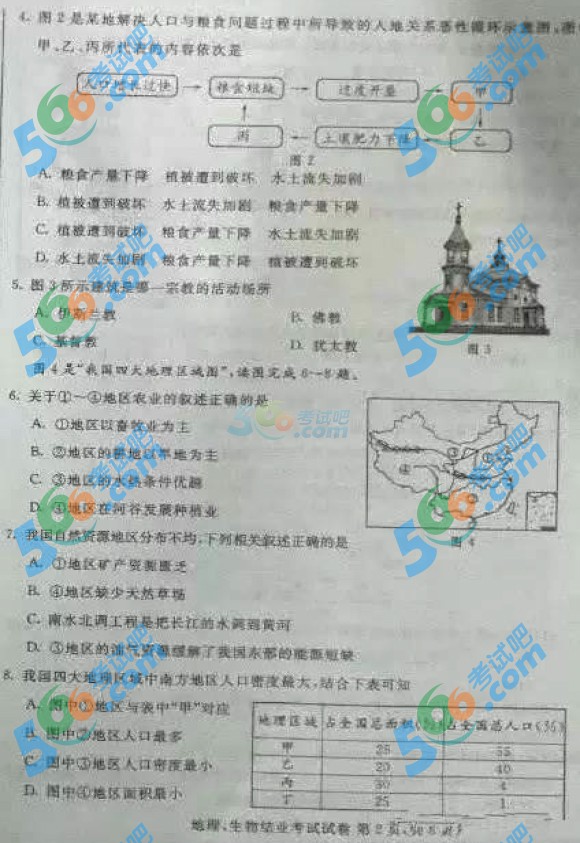 4. 图2是某地解决人口与粮食问题过程中所导致的人地关系恶性循环示意图,图
甲、乙、丙所代表的内容依次是
人口增长过快 粮食短缺 过度开垦 甲
丙 土壤肥力下降 乙
图2
A. 粮食产量下降 植被遭到破坏 水土流失加剧
B. 植被遭到破坏 水土流失加剧 粮食产量下降
C. 植被遭到破坏 粮食产量下降 水土流失加剧
D. 水土流失加剧 粮食产量下降 植被遭到破坏
5. 图3所示建筑是哪一宗教的活动场所
A. 伊斯兰教 B. 佛教
C. 基督教 D. 犹太教
图3
图4是“我国四大地理区域图”,读图完成6~8题。
6. 关于①~④地区农业的叙述正确的是
A. ①地区以畜牧业为主
B. ②地区的耕地以旱地为主
C. ③地区的水热条件优越
D. ④地区在河谷发展种植业
图4
7. 我国自然资源地区分布不均,下列相关叙述正确的是
A. ①地区矿产资源匮乏
B. ④地区缺少天然草场
C. 南水北调工程是把长江的水调到黄河
D. ③地区的油气资源缓解了我国东部的能源短缺
8. 我国四大地理区域中南方地区人口密度最大,结合下表可知
A. 图中①地区与表中“甲”对应
B. 图中②地区人口最多
C. 图中③地区人口密度最小
D. 图中④地区面积最小
地理区域 占全国总面积(%) 占全国总人口(%)
甲 25 55
乙 20 40
丙 30 4
丁 25 1
地理、生物结业考试试卷 第2页,共8页
566考试吧.com